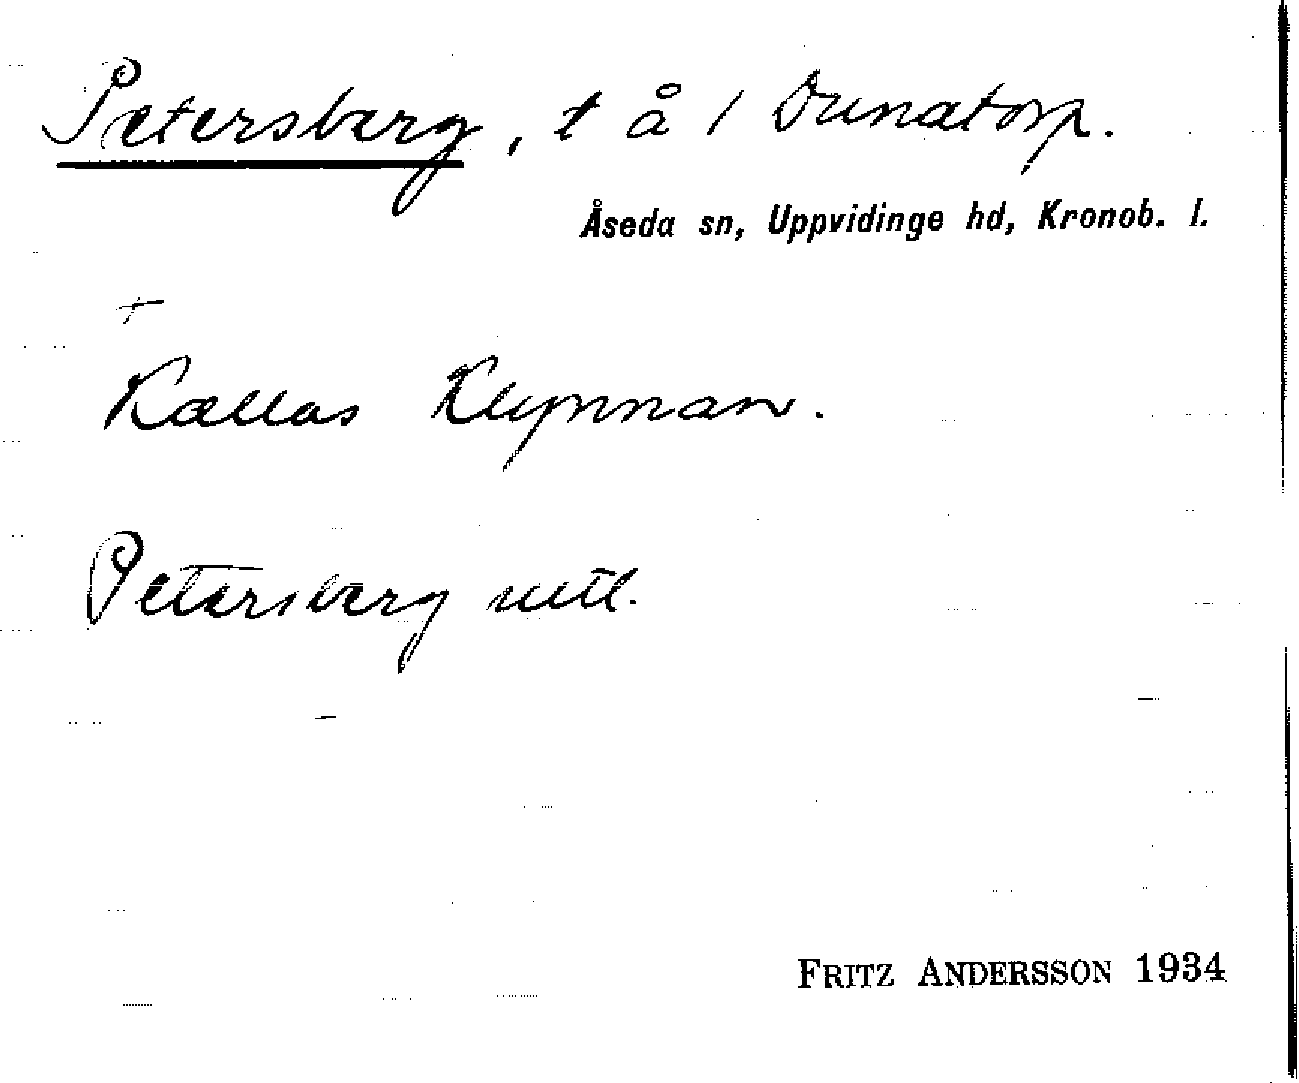 Petersberg, t å 1 Dunatorp.
Åseda sn, Uppvidinge hd, Kronob. l.
+
Kallas Klynnan.
Petersberg uttl.
FRITZ ANDERSSON 1934